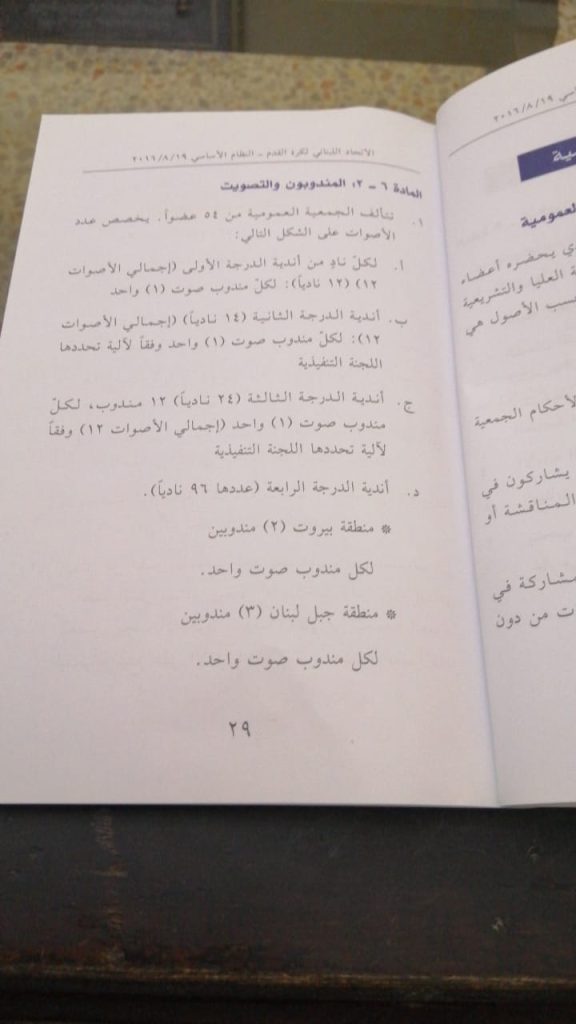 الاتحاد اللبناني لكرة القدم - النظام الأساسي ٢٠١٦/٨/١٩
المادة ٦ - ٢: المندوبون والتصويت
١. تتألف الجمعية العمومية من ٥٤ عضواً. يخصص عدد
الأصوات على الشكل التالي:
أ. لكلّ نادٍ من أندية الدرجة الأولى (إجمالي الأصوات
١٢) (١٢ نادياً): لكلّ مندوب صوت (١) واحد
ب. أندية الدرجة الثانية (١٤ نادياً) (إجمالي الأصوات
١٢): لكلّ مندوب صوت (١) واحد وفقاً لآلية تحددها
اللجنة التنفيذية
ج. أندية الدرجة الثالثة (٢٤ نادياً) ١٢ مندوب، لكلّ
مندوب صوت (١) واحد (إجمالي الأصوات ١٢) وفقاً
لآلية تحددها اللجنة التنفيذية
د. أندية الدرجة الرابعة (عددها ٩٦ نادياً).
* منطقة بيروت (٢) مندوبين
لكل مندوب صوت واحد.
* منطقة جبل لبنان (٣) مندوبين
لكل مندوب صوت واحد.
٢٩
٢٠١٦/٨/١٩
العمومية
يحضره أعضاء
العليا والتشريعية
الأصول هي
لأحكام الجمعية
يشاركون في
المناقشة أو
مشاركة في
من دون